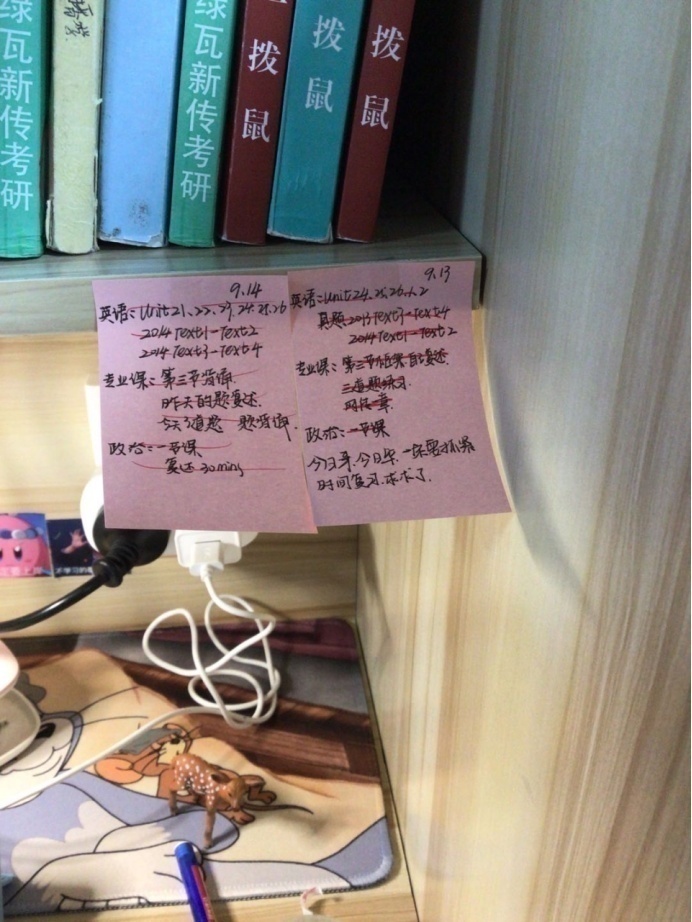 绿瓦新传考研
绿瓦新传考研
拨鼠
拨鼠
拨鼠
9.14
英语：Unit21、22、23、24、25、26
2014 Text1-Text2
2014 Text3-Text4
专业课：第三节背诵
昨天的题复述
今天3道题 题背诵
政治：一节课
复述 30mins
9.13
英语：Unit24、25、26、1、2
真题：2013 Text3-Text4
2014 Text1-Text2
专业课：第三节
自己复述
三道题练习
政治：一节课
今日事，今日毕，一定要抓紧
时间复习，求求了